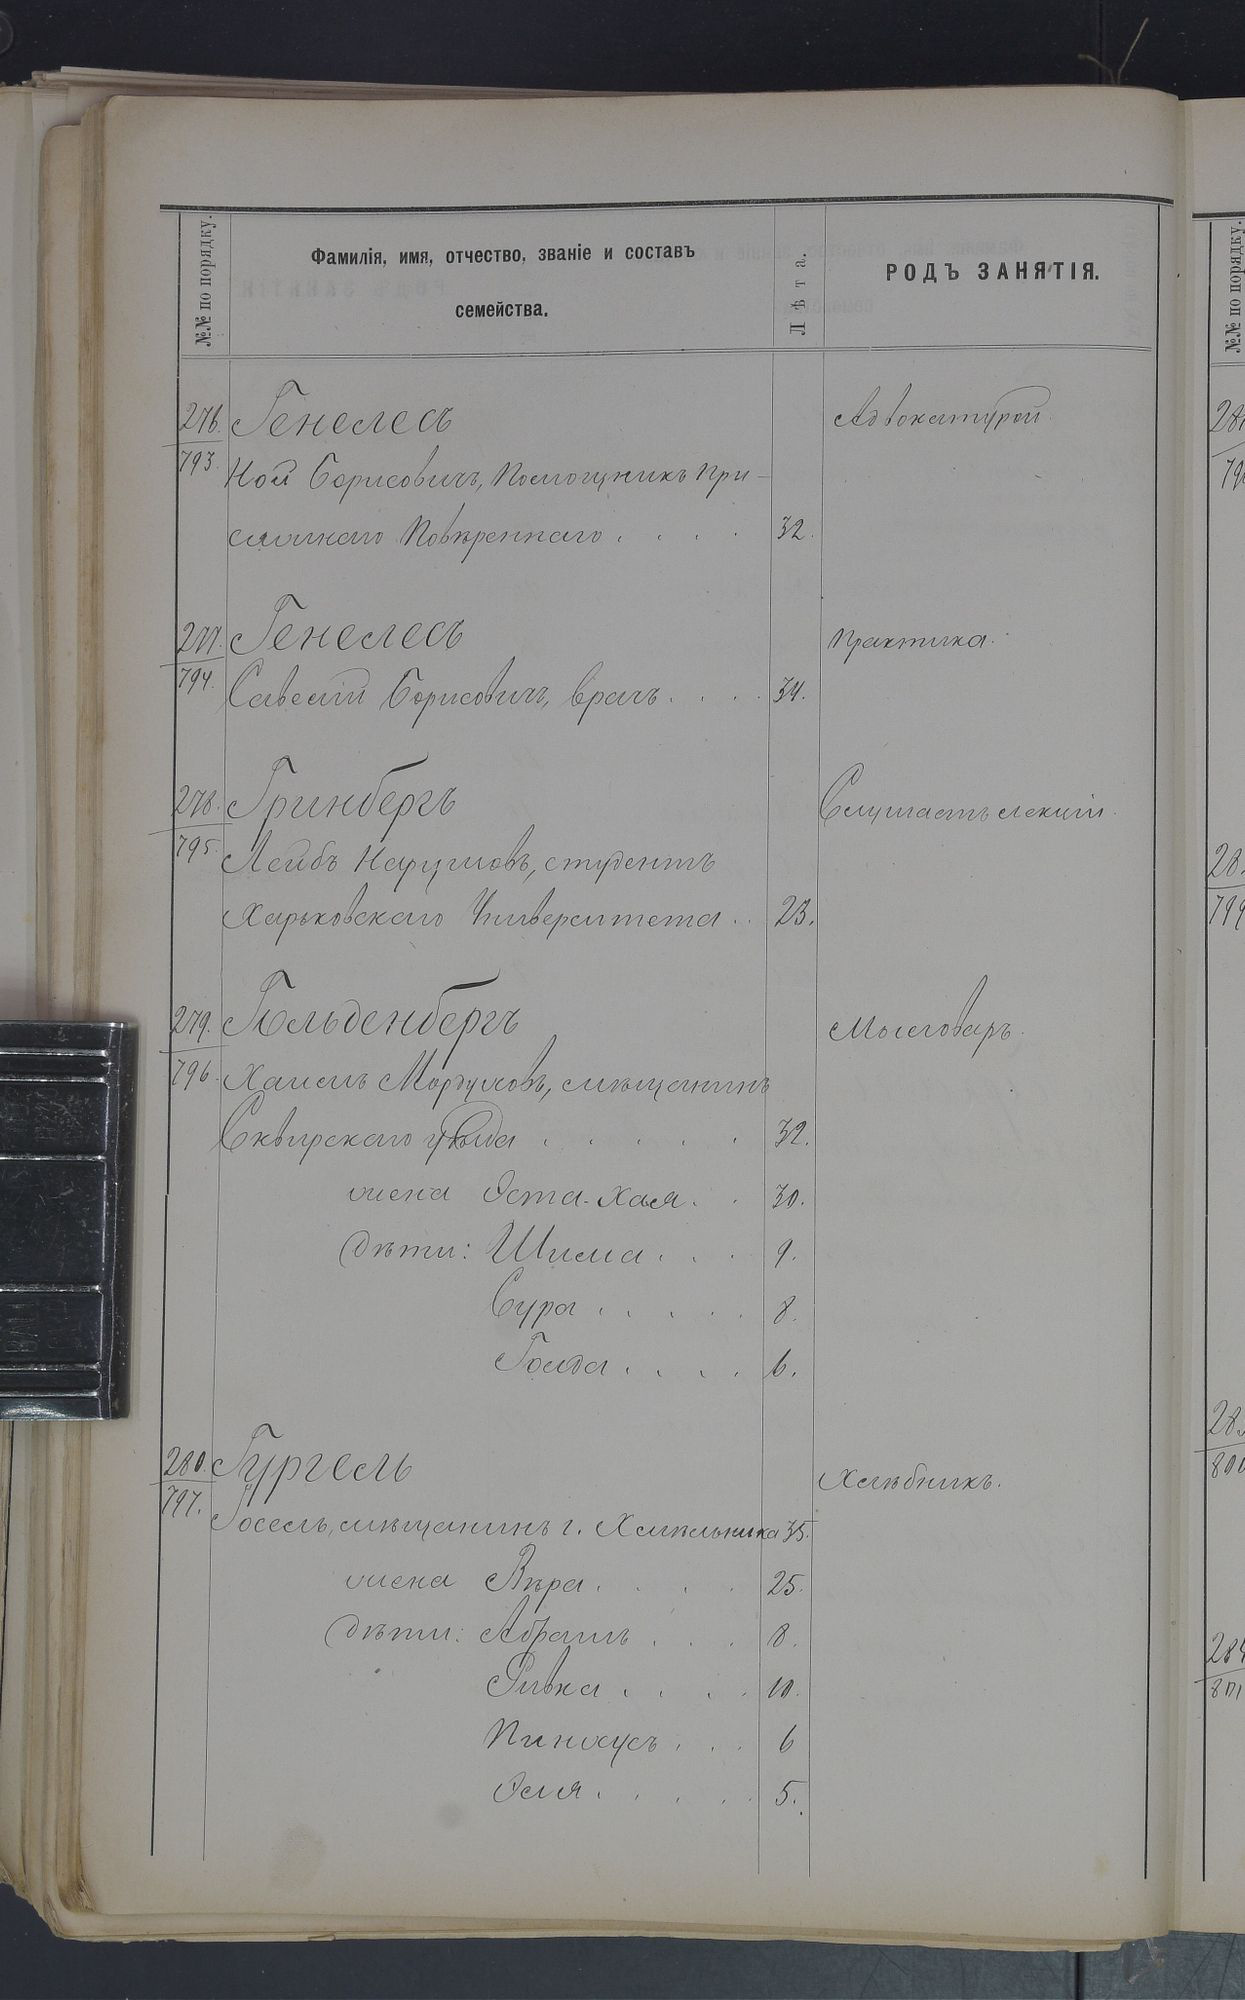 №№ по порядку.
Фамилія, имя, отчество, званіе и составъ
семейства.
Лѣта.
РОДЪ ЗАНЯТІЯ.
276. Генелесъ Адвокатурой.
793. Ной Борисовичъ, Помощникъ При-
сяжнаго Повѣреннаго . . . . 32.
277. Генелесъ Практика.
794. Савелій Борисовичъ, врачъ . . . . 34.
278. Гринбергъ Слушаетъ лекціи.
795. Лейбъ Нахумовъ, студентъ
Харьковскаго Университета . . 23.
279. Гольденбергъ Мыловаръ.
796. Хаимъ Мордуховъ, мѣщанинъ
Сквирскаго уѣзда . . . . . 32.
жена Эста-Хая . . 30.
дѣти: Шима . . . 9.
Сура . . . . . 8.
Голда . . . . 6.
280. Гургель Хлѣбникъ.
797. Іосель, мѣщанинъ г. Хмельника 35.
жена Вѣра . . . . 25.
дѣти: Абрамъ . . . 8.
Ривка . . . . 10.
Пинхусъ . . . 6
Эля . . . . . 5.
№№ по порядку.